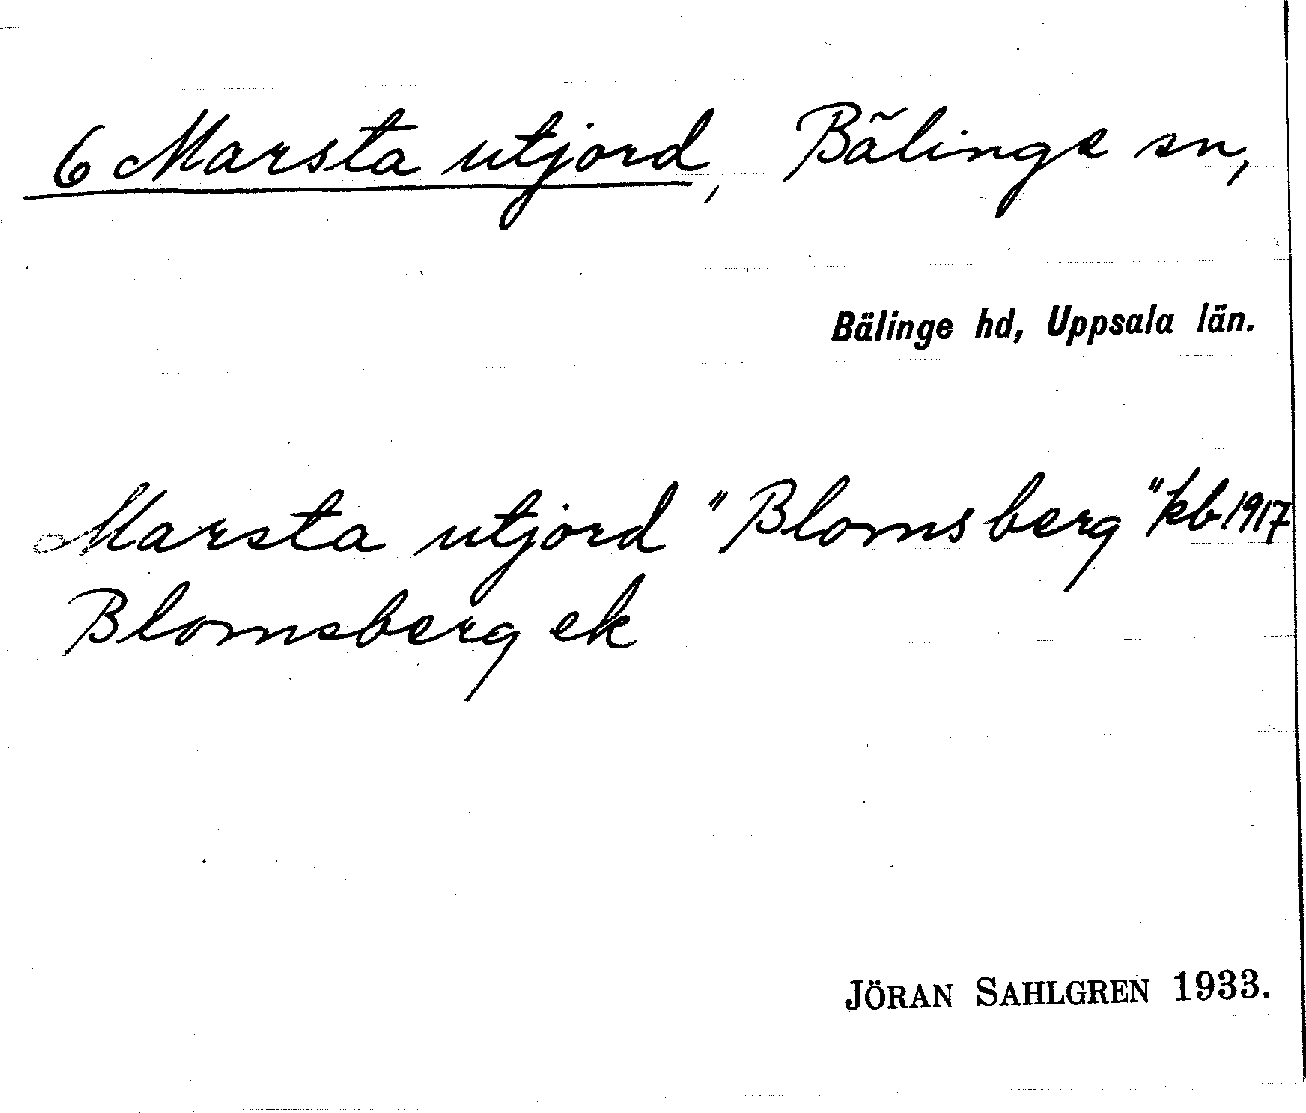 6 Marsta utjord, Bälinge sn,
Bälinge hd, Uppsala län.
Marsta utjord "Blomsberg" kb 1917
Blomsberg ek
JÖRAN SAHLGREN 1933.